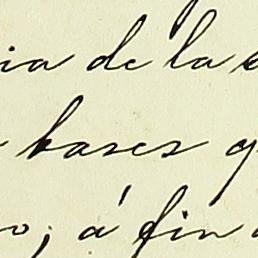 ia de la
bases
o; á fin